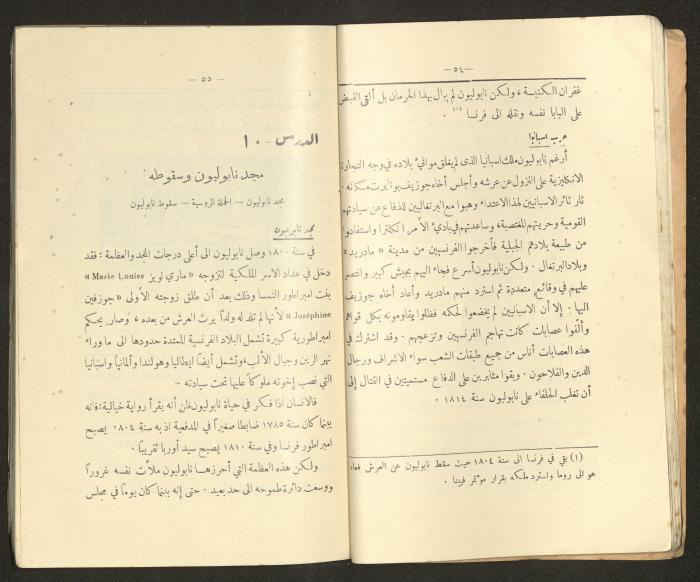 — ٥٤ —
غفران الكنيسة ، ولكن نابوليون لم يبال بهذا الحرمان بل ألقى القبض
على البابا نفسه ونقله الى فرنسا (١) .
حرب اسبانيا
أرغم نابوليون ملك اسبانيا الذى لم يغلق موانىء بلاده في وجه التجارة
الانكليزية على النزول عن عرشه وأجلس أخاه جوزيف بونابرت مكانه .
ثار ثائر الاسبانيين لهذا الاعتداء وهبوا مع البرتغاليين للدفاع عن سيادتهم
القومية وحريتهم المغتصبة، وساعدتهم في بادىء الأمر انكلترا واستفادوا
من طبيعة بلادهم الجبلية فأخرجوا الفرنسيين من مدينة « مادريد »
وبلاد البرتغال . ولكن نابوليون أسرع فجاء اليهم بجيش كبير وانتصر
عليهم في وقائع متعددة ثم استرد منهم مادريد وأعاد أخاه جوزيف
اليها : إلا أن الاسبانيين لم يخضعوا لحكمه فظلوا يقاومونه بكل قواهم
وألّفوا عصابات كانت تهاجم الفرنسيين وتزعجهم . وقد اشترك في
هذه العصابات أناس من جميع طبقات الشعب سواء الاشراف ورجال
الدين والفلاحون . وبقوا مثابرين على الدفاع مستميتين في القتال إلى
أن تغلب الحلفاء على نابوليون سنة ١٨١٤
(١) بقي في فرنسا الى سنة ١٨٠٤ حيث سقط نابوليون عن العرش فعاد
هو الى روما واسترد ملكه بقرار مؤتمر فيينا .
— ٥٥ —
الدرس - ١٠
مجد نابوليون وسقوطه
مجد نابوليون — الحملة الروسية — سقوط نابوليون
مجد نابوليون
في سنة ١٨١٠ وصل نابوليون الى أعلى درجات المجد والعظمة : فقد
دخل في عداد الاسر الملكية لتزوجه « ماري لويز Marie Louise »
بنت امبراطور النمسا وذلك بعد أن طلق زوجته الأولى « جوزفين
Joséphine » لأنها لم تلد له ولداً يرث العرش من بعده ، وصار يحكم
امبراطورية كبيرة تشمل البلاد الفرنسية الممتدة حدودها الى ما وراء
نهر الرين وجبال الألب، وتشمل أيضاً ايطاليا وهولندا وألمانيا واسبانيا
التي نصب إخوته ملوكاً عليها تحت سيادته .
فالانسان اذا فكر في حياة نابوليون ظن أنه يقرأ رواية خيالية: فانه
بينما كان سنة ١٧٨٥ ضابطاً صغيراً في المدفعية اذ به سنة ١٨٠٤ يصبح
امبراطور فرنسا وفي سنة ١٨١٠ يصبح سيد أوربا تقريباً .
ولكن هذه العظمة التي أحرزها نابوليون ملأت نفسه غروراً
ووسعت دائرة طموحه الى حد بعيد . حتى إنه بينما كان يوماً في مجلس